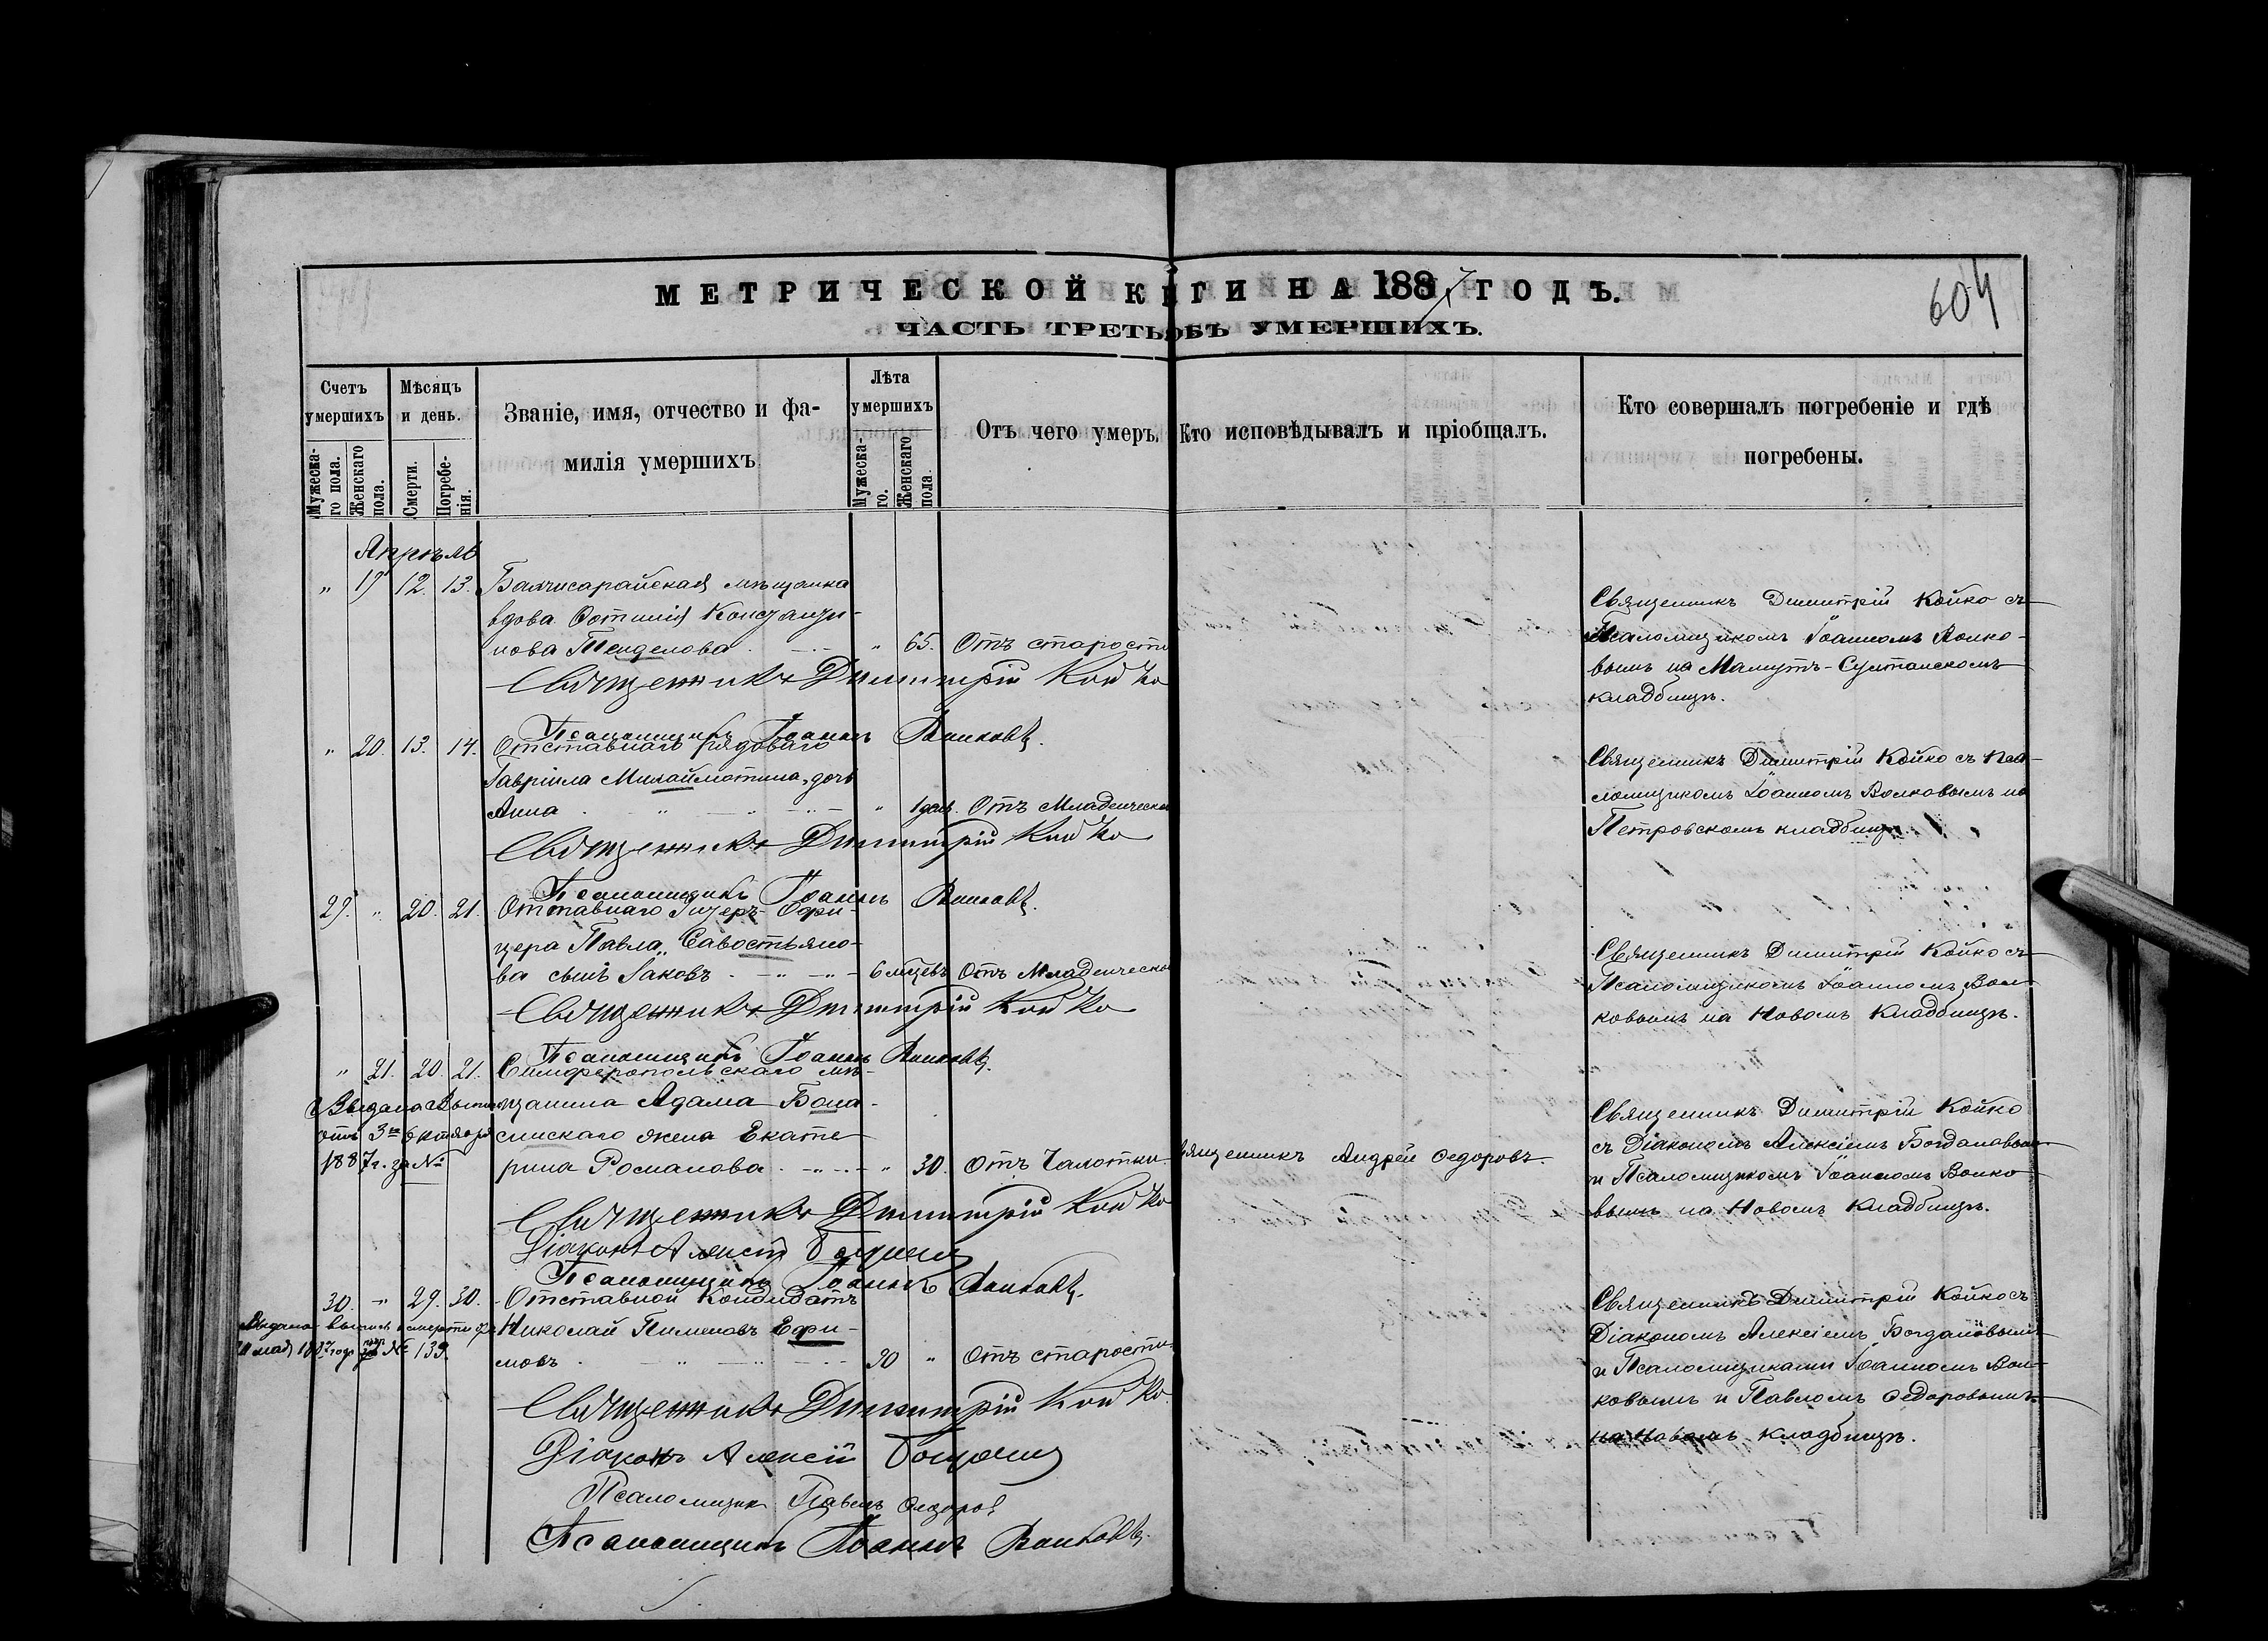 МЕТРИЧЕСКОЙ КНИГИ НА 1887 ГОДЪ.
604
ЧАСТЬ ТРЕТЬЯ ОБЪ УМЕРШИХЪ.
Счетъ умершихъ
Мужеска-го пола.
Женскаго пола.
Мѣсяцъ и день.
Смерти.
Погребе-нія.
Званіе, имя, отчество и фа-
милія умершихъ
Лѣта умершихъ
Мужеска-го.
Женскаго пола.
Отъ чего умеръ.
Кто исповѣдывалъ и пріобщалъ.
Кто совершалъ погребеніе и гдѣ
погребены.
Апрѣль
" 19 12. 13. Бахчисарайская мѣщанка
вдова Фотинія Констанди-
нова " 65. Отъ старости
Священникъ Димитрій Койко съ
Псаломщикомъ Іоанномъ Волко-
вымъ на Мамутъ-Султанскомъ
кладбищѣ.
Священникъ Димитрій Койко
Псаломщикъ Іоаннъ Волковъ.
" 20. 13. 14. Отставнаго рядоваго
Гавріила дочь
Анна " 1 день Отъ Младенческой
Священникъ Димитрій Койко съ Пса-
ломщикомъ Іоанномъ Волковымъ на
Петровскомъ кладбищѣ.
Священникъ Димитрій Койко
Псаломщикъ Іоаннъ Волковъ.
29. " 20. 21. Отставнаго Унтеръ-Офи-
цера Павла Савостьяно-
ва сынъ Іаковъ 6 мѣцевъ Отъ Младенческой
Священникъ Димитрій Койко съ
Псаломщикомъ Іоанномъ Вол-
ковымъ на Новомъ Кладбищѣ.
Священникъ Димитрій Койко
Псаломщикъ Іоаннъ Волковъ.
" 21. 20. 21. Симферопольскаго мѣ-
щанина Адама
жена Екате-
рина Романова " 30. Отъ Чахотки. Священникъ Андрей Ѳедоровъ.
Выдана
отъ 3го Октября
1887 г. за №
Священникъ Димитрій Койко
съ Діакономъ Алексіемъ Богдановымъ
и Псаломщикомъ Іоанномъ Волко-
вымъ на Новомъ Кладбищѣ.
Священникъ Димитрій Койко
Діаконъ Алексій
Псаломщикъ Іоаннъ Волковъ.
30. " 29. 30. Отставной Кондидатъ
Николай Пименовъ Ефи-
мовъ 90 " Отъ старости
Выдана выпись о смерти
мая 1887 года за № 139.
Священникъ Димитрій Койко съ
Діакономъ Алексіемъ Богдановымъ
и Псаломщиками Іоанномъ Вол-
ковымъ и Павломъ Ѳедоровымъ
на Новомъ кладбищѣ.
Священникъ Димитрій Койко
Діаконъ Алексій
Псаломщикъ Павелъ Ѳедоровъ
Псаломщикъ Іоаннъ Волковъ.